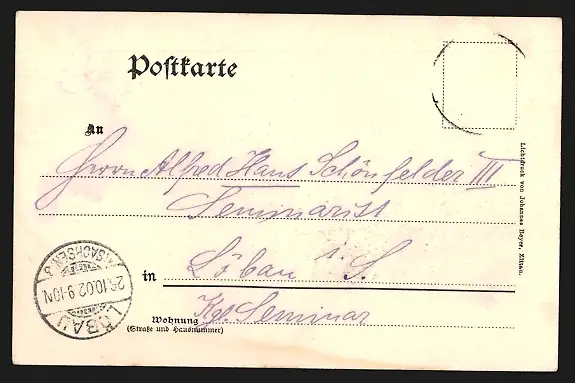 Postkarte
An
Herrn Alfred Hans Schönfelder III
Seminarist
in Löbau i. S.
Kgl. Seminar
Wohnung
(Straße und Hausnummer)
LÖBAU
(SACHSEN) 3
26.10.02 9-10N
Lichtdruck von Johannes Heyer, Zittau.